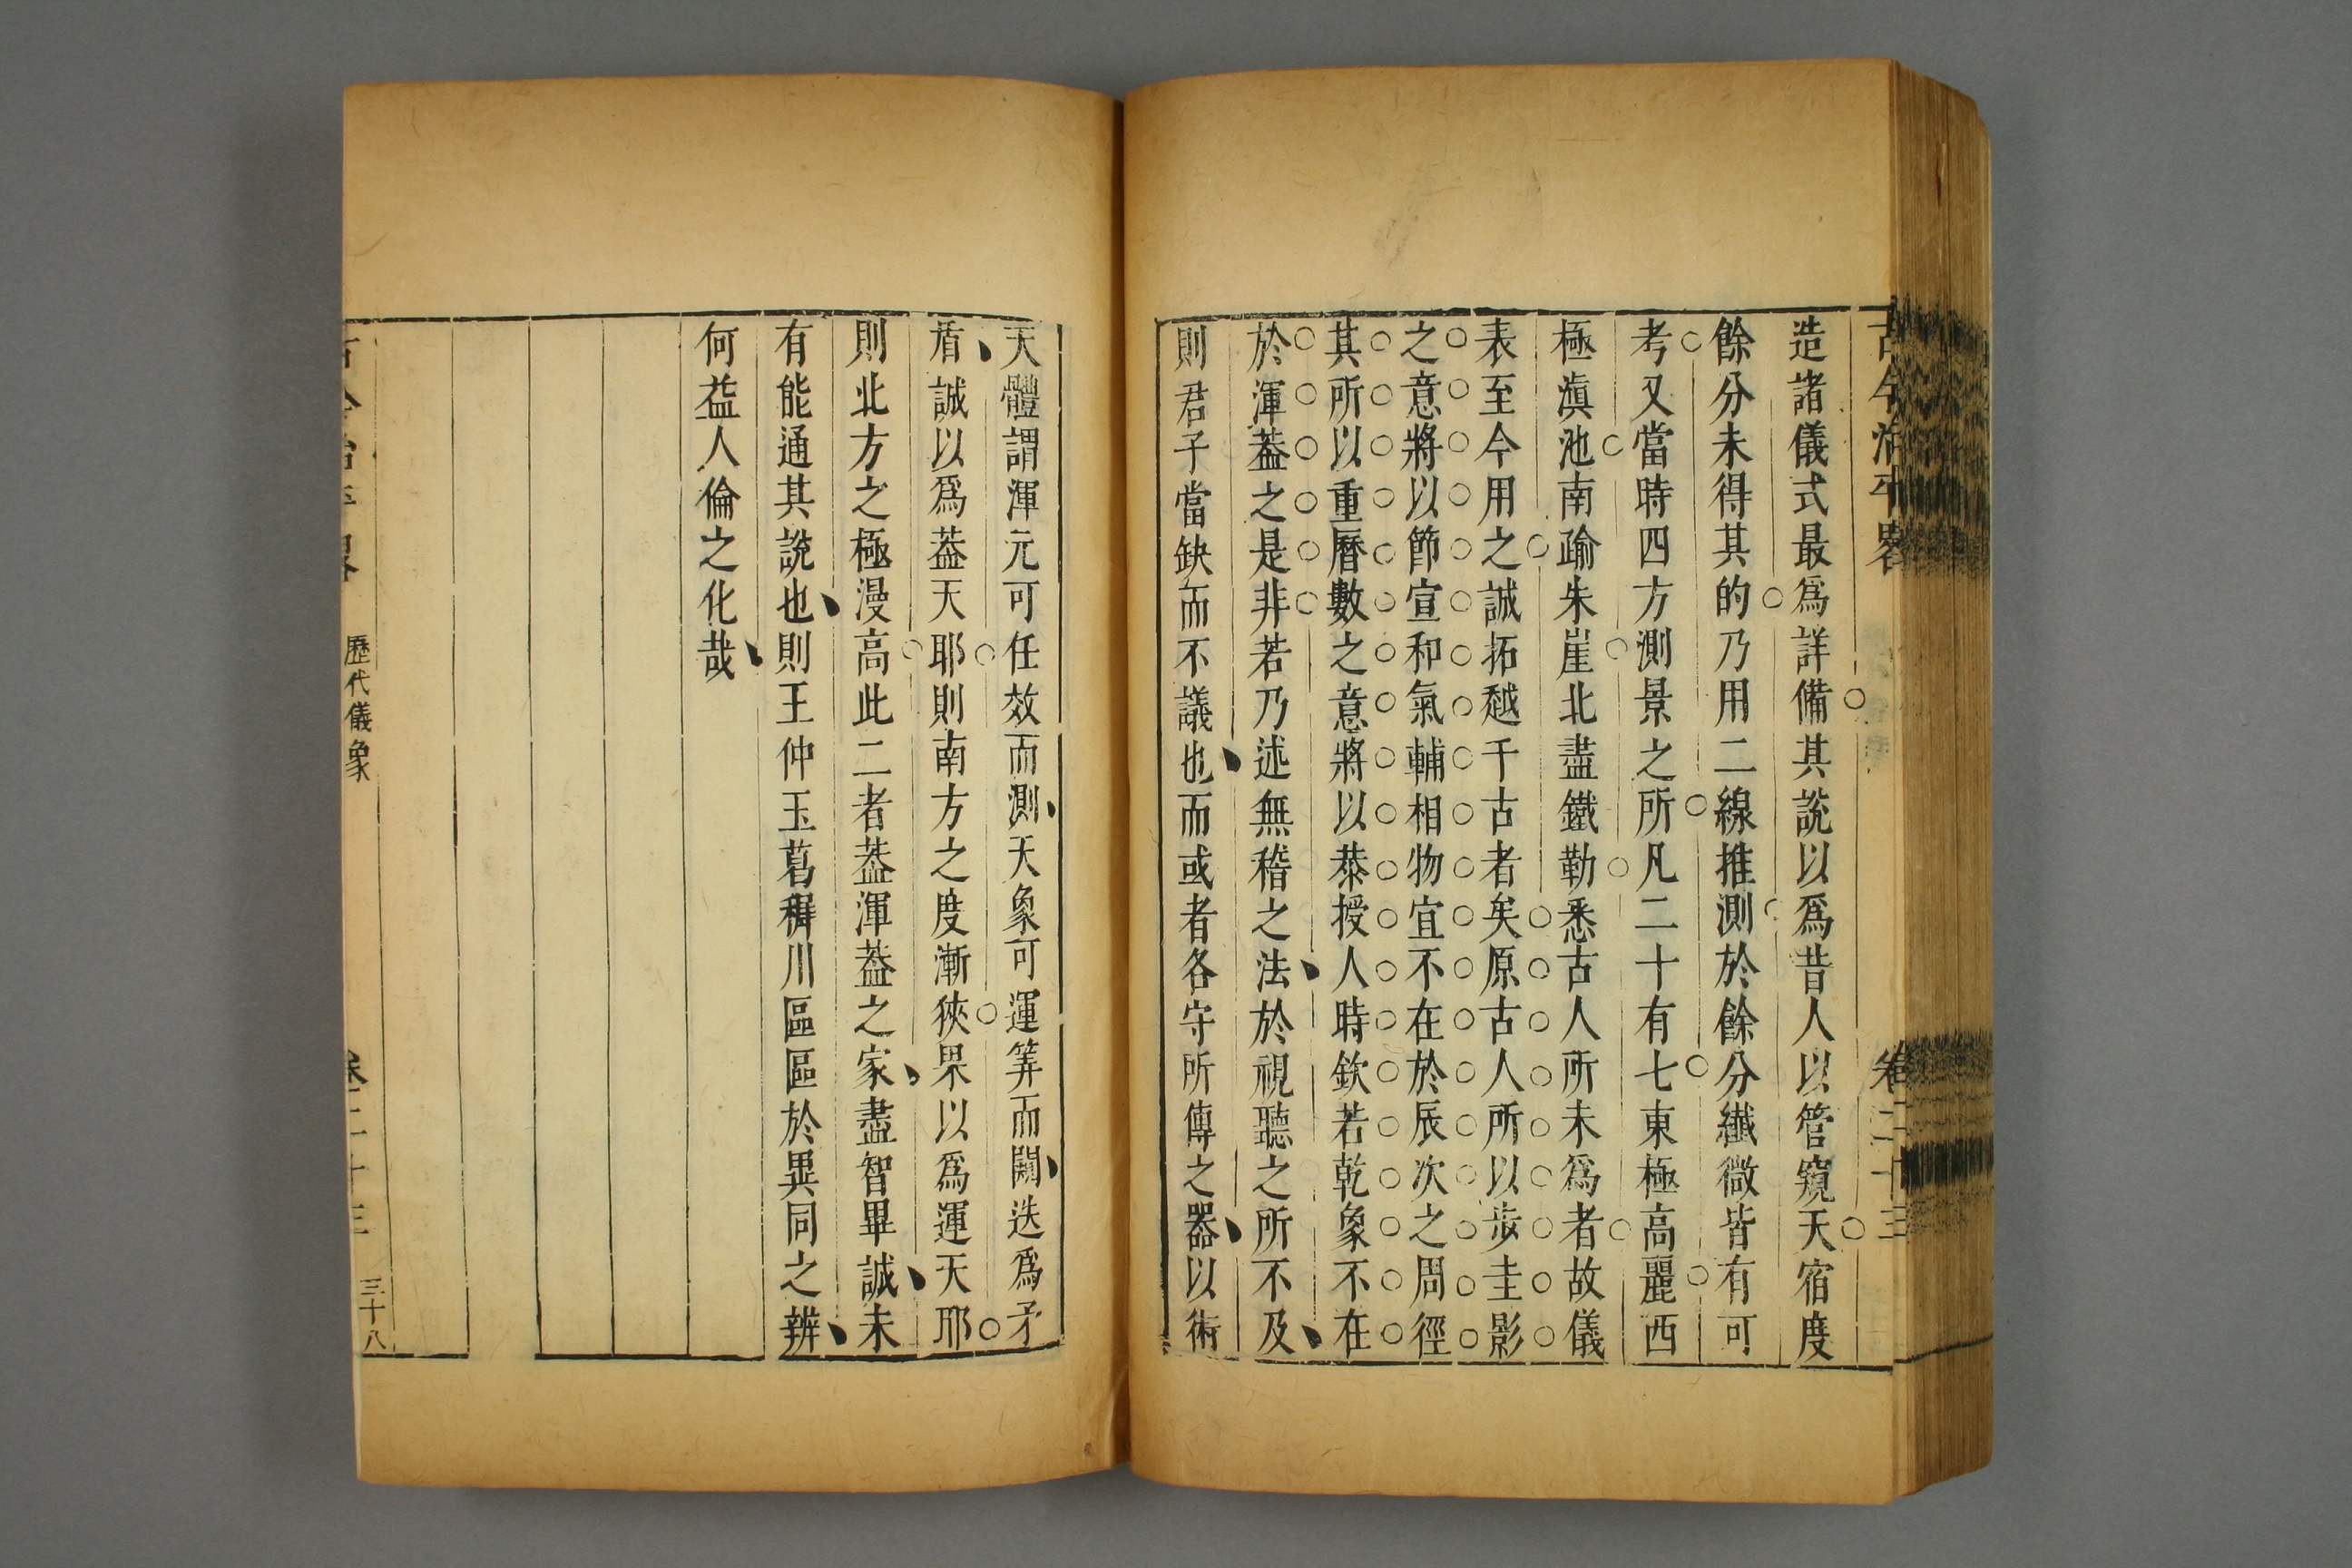 古今治平畧
卷二十三
造諸儀式最爲詳備其說以爲昔人以管窺天宿度
餘分未得其的乃用二線推測於餘分纖微皆有可
考又當時四方測景之所凡二十有七東極高麗西
極滇池南踰朱崖北盡鐵勒悉古人所未爲者故儀
表至今用之誠拓越千古者矣原古人所以步圭影
之意將以節宣和氣輔相物宜不在於辰次之周徑
其所以重曆數之意將以恭授人時欽若乾象不在
於渾葢之是非若乃述無稽之法於視聽之所不及
則君子當缺而不議也而或者各守所傳之器以術
天體謂渾元可任效而測天象可運筭而闚迭爲矛
盾誠以爲葢天耶則南方之度漸狹果以爲運天耶
則北方之極漫高此二者葢渾葢之家盡智畢誠未
有能通其說也則王仲玉葛稺川區區於異同之辨
何益人倫之化哉
古今治平畧
歷代儀象
卷二十三
三十八